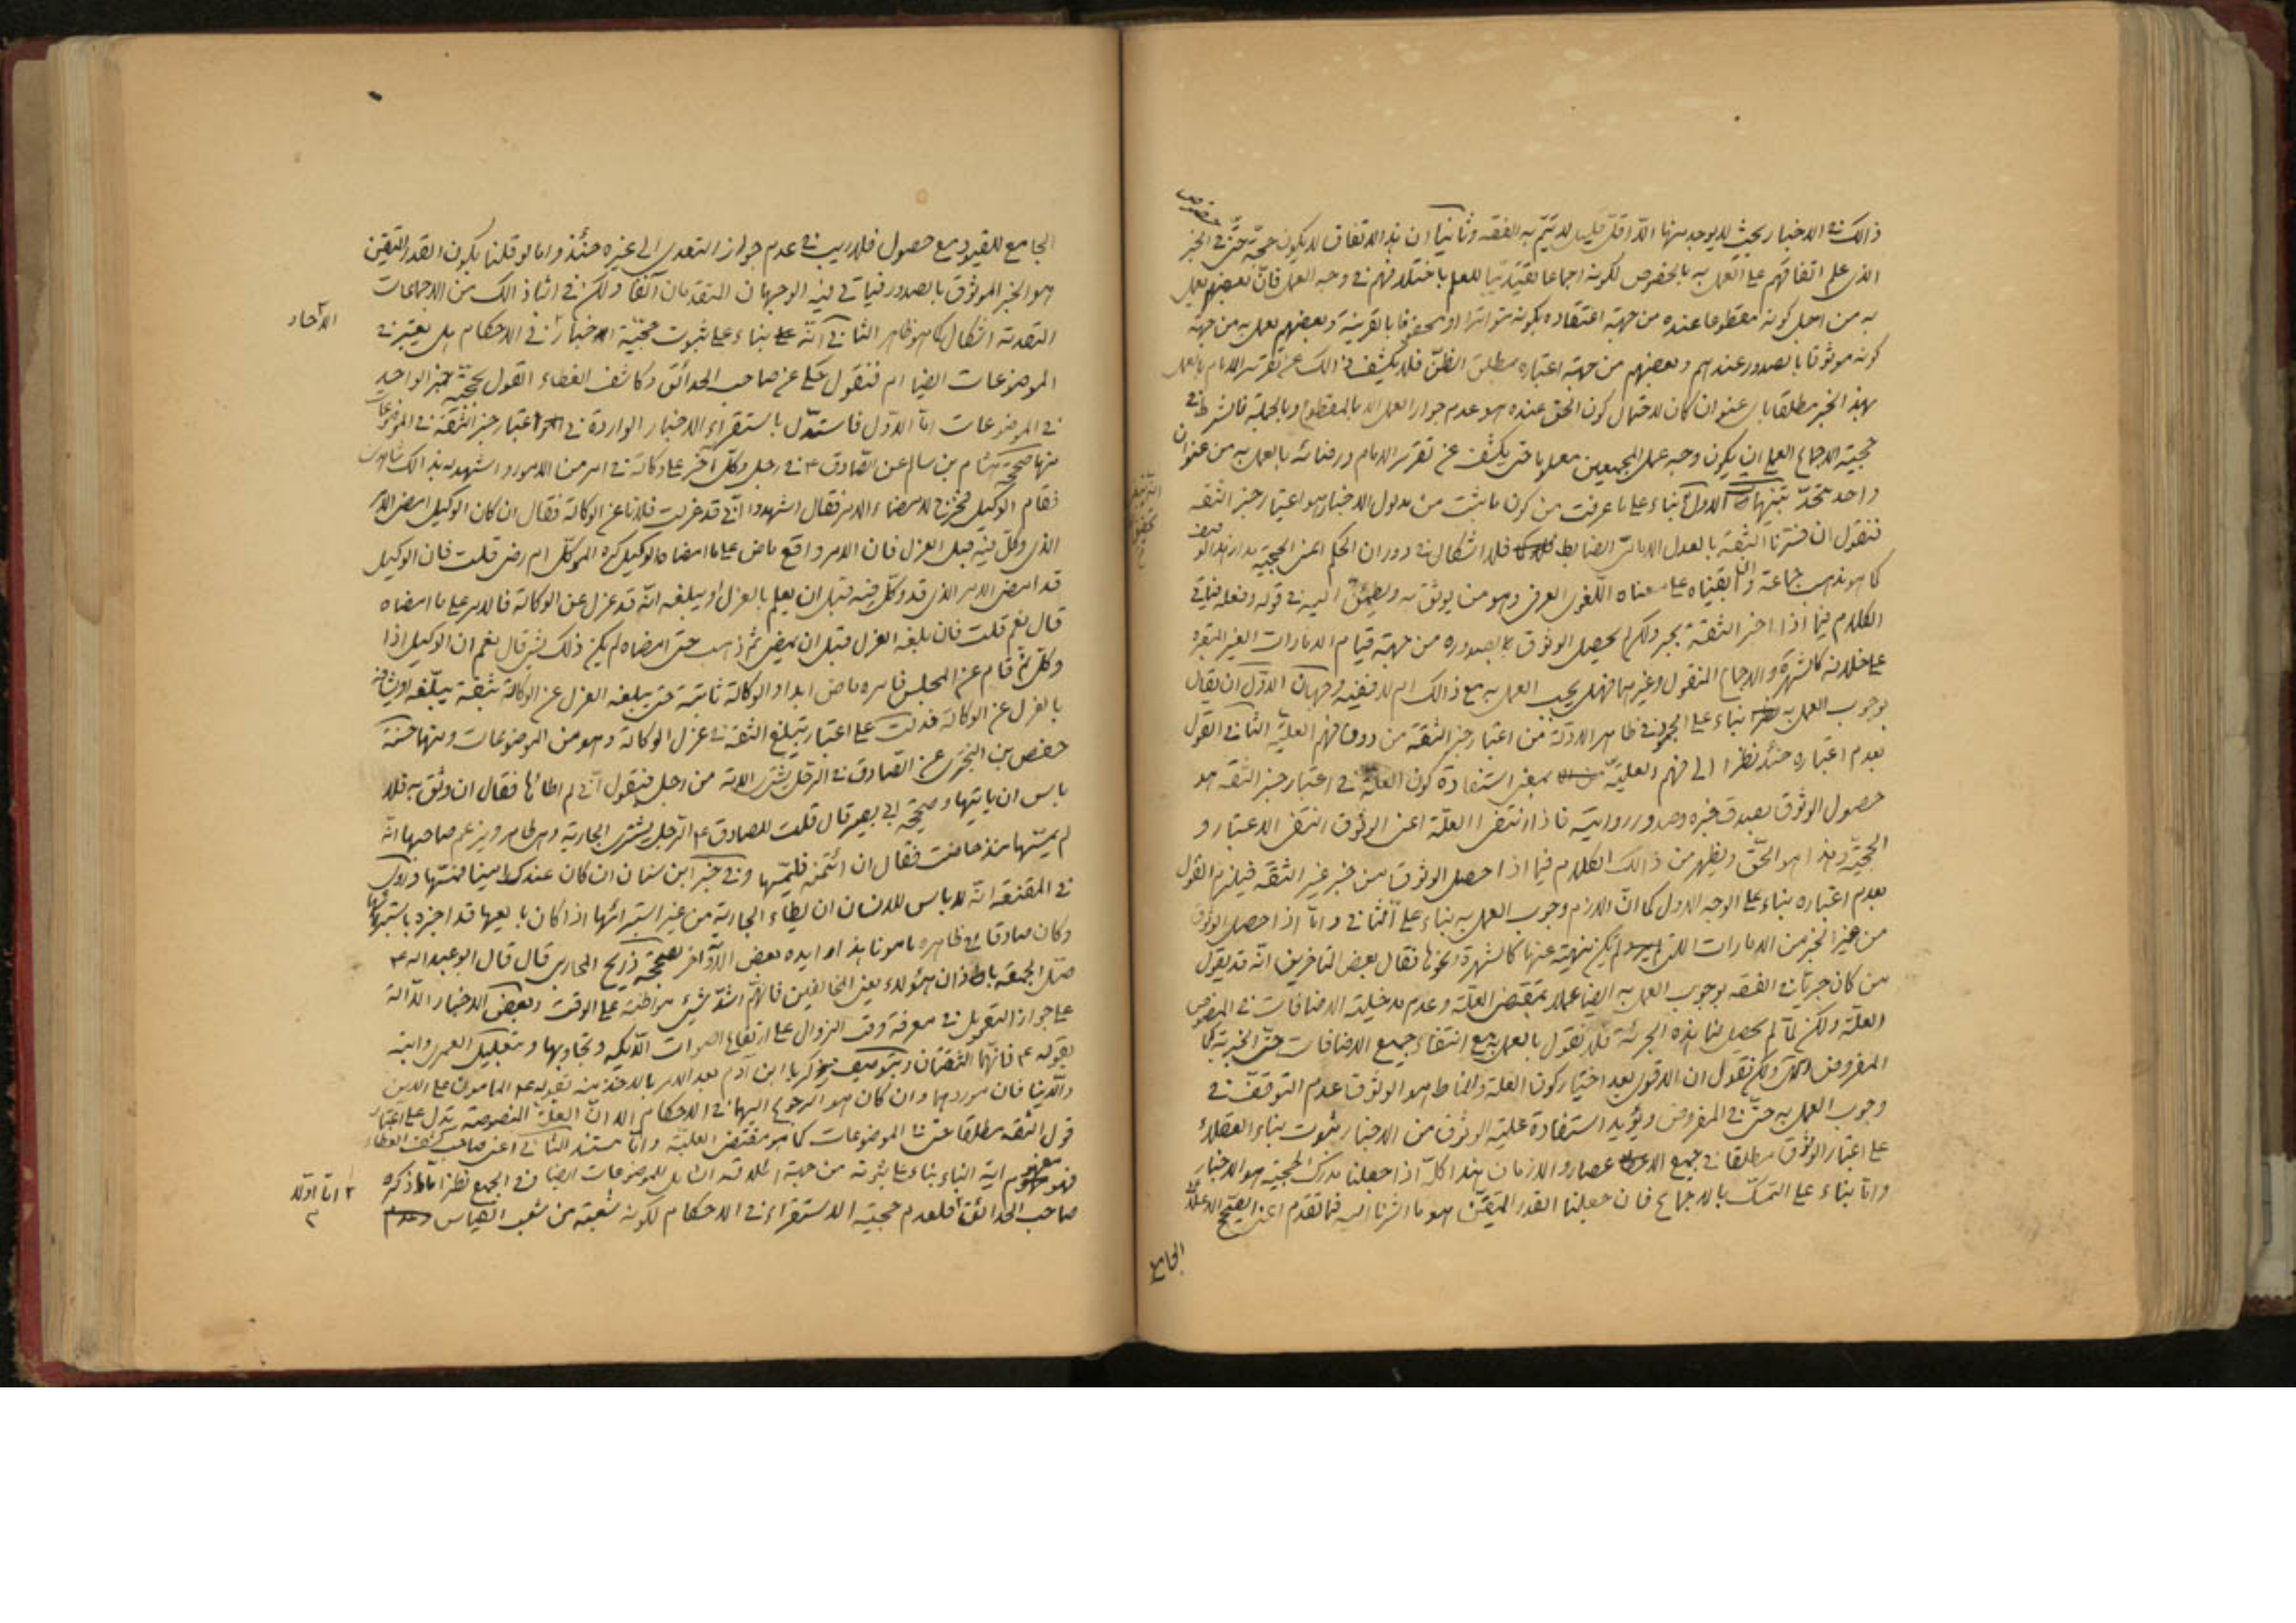 ذالك في الاخبار بحيث لا يوجد منها الا اقل قليل لا يتم به الفقه وثانيا ان هذا الاتفاق لا يكون حجة حتى في الخبر
الذي علم اتفاقهم على العمل به بالخصوص لكونه اجماعا تقييديا للعلم باختلافهم في وجه العمل فان بعضهم يعمل
به من اجل كونه مقطوعا عنده من جهة اعتقاده بكونه متواترا او محفوفا بالقرينة وبعضهم يعمل به من جهة
كونه موثوقا بالصدور عندهم وبعضهم من جهة اعتباره مطلق الظن فلا يكشف ذالك عن تقرير الامام بالعمل
بهذا الخبر مطلقا باي عنوان كان لاحتمال كون الحق عنده هو عدم جواز العمل الا بالمقطوع وبالجملة فالشرط في
حجية الاجماع العملي ان يكون وجه عمل المجمعين معلوما حتى يكشف عن تقرير الامام ورضائه بالعمل به من عنوان
واحد تنبيهات الاول بناء على ما عرفت من كون ما ثبت من مدلول الاخبار هو اعتبار خبر الثقة
فنقول ان فسرنا الثقة بالعدل الامامي الضابط فلا اشكال في دوران الحكم اعني الحجية مدار هذا الوصف
كما هو مذهب جماعة وان ابقيناه على معناه اللغوي العرفي وهو من يوثق به ويطمئن اليه في قوله وفعله فياتي
الكلام فيما اذا اخبر الثقة بخبر ولكن لم يحصل الوثوق بصدوره من جهة قيام الامارات الغير المعتبرة
على خلافه كالشهرة والاجماع المنقول وغيرهما فهل يجب العمل به مع ذالك ام لا ففيه وجهان الاول ان يقال
بوجوب العمل به بناء على الجمود في ظاهر الادلة من اعتبار خبر الثقة من دون فهم العلية الثاني القول
بعدم اعتباره حينئذ نظرا الى فهم العلية بمعنى استفادة كون العلة في اعتبار خبر الثقة هو
حصول الوثوق بصدق خبره وصدور روايته فاذا انتفى العلة اعني الوثوق انتفى الاعتبار و
الحجية وهذا هو الحق ويظهر من ذالك الكلام فيما اذا حصل الوثوق من خبر غير الثقة فيلزم القول
بعدم اعتباره بناء على الوجه الاول كما ان اللازم وجوب العمل به بناء على الثاني واما اذا حصل الوثوق
من غير الخبر من الامارات التي لم يكن منهية عنها كالشهرة ونحوها فقال بعض المتاخرين انه قد يقول
من كان جريا في الفقه بوجوب العمل به ايضا عملا بمقتضى العلة وعدم مدخلية الاضافات في المنصوص
العلة ولكن لما لم يحصل لنا هذه الجرئة فلا نقول بالعمل به مع انتفاء جميع الاضافات حتى الخبرية كما
المفروض ولكن نقول ان الاقوى بعد اختيار كون العلة والمناط هو الوثوق عدم التوقف في
وجوب العمل به حتى في المفروض ويؤيد استفادة علية الوثوق من الاخبار ثبوت بناء العقلاء
على اعتبار الوثوق مطلقا في جميع الاعصار والازمان هذا كله اذا جعلنا مدرك الحجية هو الاخبار
واما بناء على التمسك بالاجماع فان جعلنا القدر المتيقن هو ما اشرنا اليه فيما تقدم اعني الصحيح الاعلائي
الجامع
الجامع للقيود مع حصول فلا ريب في عدم جواز التعدي الى غيره حينئذ واما لو قلنا بكون القدر المتيقن
هو الخبر الموثوق بالصدور فياتي فيه الوجهان المتقدمان آنفا ولكن في اثبات ذالك من الاجماعات
المتقدمة اشكال كما هو ظاهر الثاني انه بناء على ثبوت حجية اخبار الآحاد في الاحكام هل يعتبر في
الموضوعات ايضا ام فنقول حكي عن صاحب الحدائق وكاشف الغطاء القول بحجية خبر الواحد
في الموضوعات اما الاول فاستدل باستقراء الاخبار الواردة في اعتبار خبر الثقة في الموضوعات
منها صحيحة هشام بن سالم عن الصادق ع في رجل وكل آخر على وكالة في امر من الامور واشهد له بذالك شاهدين
فقام الوكيل فخرج لامضاء الامر فقال اشهدوا اني قد عزلت فلانا عن الوكالة فقال ان كان الوكيل امضى الامر
الذي وكل فيه قبل العزل فان الامر واقع ماض على ما امضاه الوكيل كره الموكل ام رضى قلت فان الوكيل
قد امضى الامر الذي قد وكل فيه قبل ان يعلم بالعزل او يبلغه انه قد عزل عن الوكالة فالامر على ما امضاه
قال نعم قلت فان بلغه العزل قبل ان يمضي ثم ذهب حتى امضاه لم يكن ذلك بشيء قال نعم ان الوكيل اذا
وكل ثم قام عن المجلس فامره ماض ابدا والوكالة ثابتة حتى يبلغه العزل عن الوكالة بثقة يبلغه او يشافه
بالعزل عن الوكالة فدلت على اعتبار تبليغ الثقة في عزل الوكالة وهو من الموضوعات ومنها حسنة
حفص بن البختري عن الصادق في الرجل يشتري الامة من رجل فيقول اني لم اطاها فقال ان وثق به فلا
باس ان ياتيها وصحيحة ابي بصير قال قلت للصادق ع الرجل يشتري الجارية وهي طاهر ويزعم صاحبها انه
لم يمسها منذ حاضت فقال ان ائتمنه فليمسها وفي خبر ابن سنان ان كان عندك امينا فمسها وروى
في المقنعة انه لا باس للانسان ان يطاء الجارية من غير استبرائها اذا كان بايعها قد اخبره باستبرائها
وكان صادقا في ظاهره مامونا هذا وايده بعض الاواخر بصحيحة ذريح المحاربي قال قال ابو عبد الله ع
صل الجمعة باذان هؤلاء يعني المخالفين فانهم اشد شيء مواظبة على الوقت وبعض الاخبار الدالة
على جواز التعويل في معرفة وقت الزوال على ارتفاع اصوات الديكة وتجاوبها وبتعليل العمري وابنه
بقوله ع فانهما الثقتان وبتوصيف زكريا ابن آدم بعد الامر بالاخذ منه بقوله ع المامون على الدين
والدنيا فان موردهما وان كان هو الرجوع اليهما في الاحكام الا ان العلة المنصوصة تدل على اعتبار
قول الثقة مطلقا حتى في الموضوعات كما هو مقتضى العلية واما مستند الثاني اعني صاحب كشف الغطاء
فهو مفهوم اية النباء بناء على ثبوته من جهة اطلاقه الشامل للموضوعات ايضا وفي الجميع نظر اما ما ذكره
صاحب الحدائق فلعدم حجية الاستقراء في الاحكام لكونه شعبة من شعب القياس
الآحاد
اما اولا